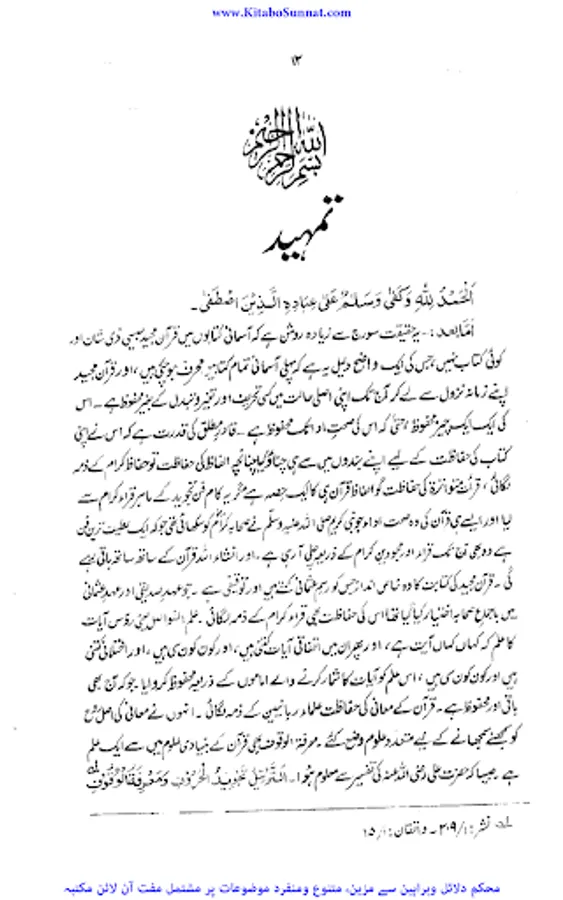 www.KitaboSunnat.com
۱۳
بِسْمِ اللهِ الرَّحْمٰنِ الرَّحِيْمِ
تمہید
اَلْحَمْدُ لِلّٰهِ وَكَفٰى وَسَلَامٌ عَلٰى عِبَادِهِ الَّذِيْنَ اصْطَفٰى ۔
اَمَّا بَعد :۔ یہ حقیقت سورج سے زیادہ روشن ہے کہ آسمانی کتابوں میں قرآن مجید جیسی ذی شان اور
کوئی کتاب نہیں جس کی ایک واضح دلیل یہ ہے کہ پہلی آسمانی تمام کتابیں محرف ہو چکی ہیں ، اور قرآن مجید
اپنے زمانہ نزول سے لے کر آج تک اپنی اصلی حالت میں کسی تحریف اور تغیر و تبدل کے بغیر محفوظ ہے ۔ اس
کی ایک ایک چیز محفوظ ، حتیٰ کہ اس کی صحتِ ادا تک محفوظ ہے ۔ قادرِ مطلق کی قدرت ہے کہ اس نے اپنی
کتاب کی حفاظت کے لیے اپنے بندوں میں سے ہی چناؤ کیا چنانچہ الفاظ کی حفاظت تو حفاظ کرام کے ذمہ
لگائی ، قرات متواترۃ کی حفاظت گو الفاظِ قرآن ہی کا ایک حصہ ہے مگر یہ کام فن تجوید کے ماہر قراء کرام سے
لیا اور ایسے ہی قرآن کی وہ صحت ادا ، جو نبی کریم صلی اللہ علیہ وسلم نے صحابہ کرامؓ کو سکھائی تھی جو کہ ایک لطیف ترین فن
ہے وہ بھی آج تک قراء اور مجودین کرام کے ذریعہ چلی آ رہی ہے ، اور انشاء اللہ قرآن کے ساتھ ساتھ باقی رہے
گی ۔ قرآن مجید کی کتابت کا وہ خاص انداز جس کو رسم عثمانی کہتے ہیں اور توقیفی ہے ۔ جو عہد صدیقی اور عہد عثمانی
میں باجماع صحابہ اختیار کیا گیا تھا اس کی حفاظت بھی قراء کرام کے ذمہ لگائی ۔ علم الفواصل یعنی رؤس آیات
کا علم کہ کہاں کہاں آیت ہے ، اور پھر ان میں اتفاقی آیات کتنی ہیں ، اور کون کون سی ہیں ، اور اختلافی کتنی
ہیں اور کون کون سی ہیں ، اس علم کو آیات کا شمار کرنے والے اماموں کے ذریعہ محفوظ کروایا ۔ جو کہ آج بھی
باقی اور محفوظ ہے ۔ قرآن کے معانی کی حفاظت علماء ربانیین کے ذمہ لگائی ۔ انہوں نے معانی کی اصل شرح
کو سمجھنے سمجھانے کے لیے متعدد علوم وضع کئے ۔ معرفۃ الوقوف بھی قرآن کے بنیادی علوم میں سے ایک علم
ہے ۔ جیسا کہ حضرت علی رضی اللہ عنہ کی تفسیر سے معلوم ہوا ۔ اَلتَّرْتِيْلُ تَجْوِيْدُ الْحُرُوْفِ وَمَعْرِفَةُ الْوُقُوْفِ لہ
لہ نشر : ۱/۲۰۹ ۔ و اتقان : ۱/۱۵
محکم دلائل وبراہین سے مزین، متنوع ومنفرد موضوعات پر مشتمل مفت آن لائن مکتبہ